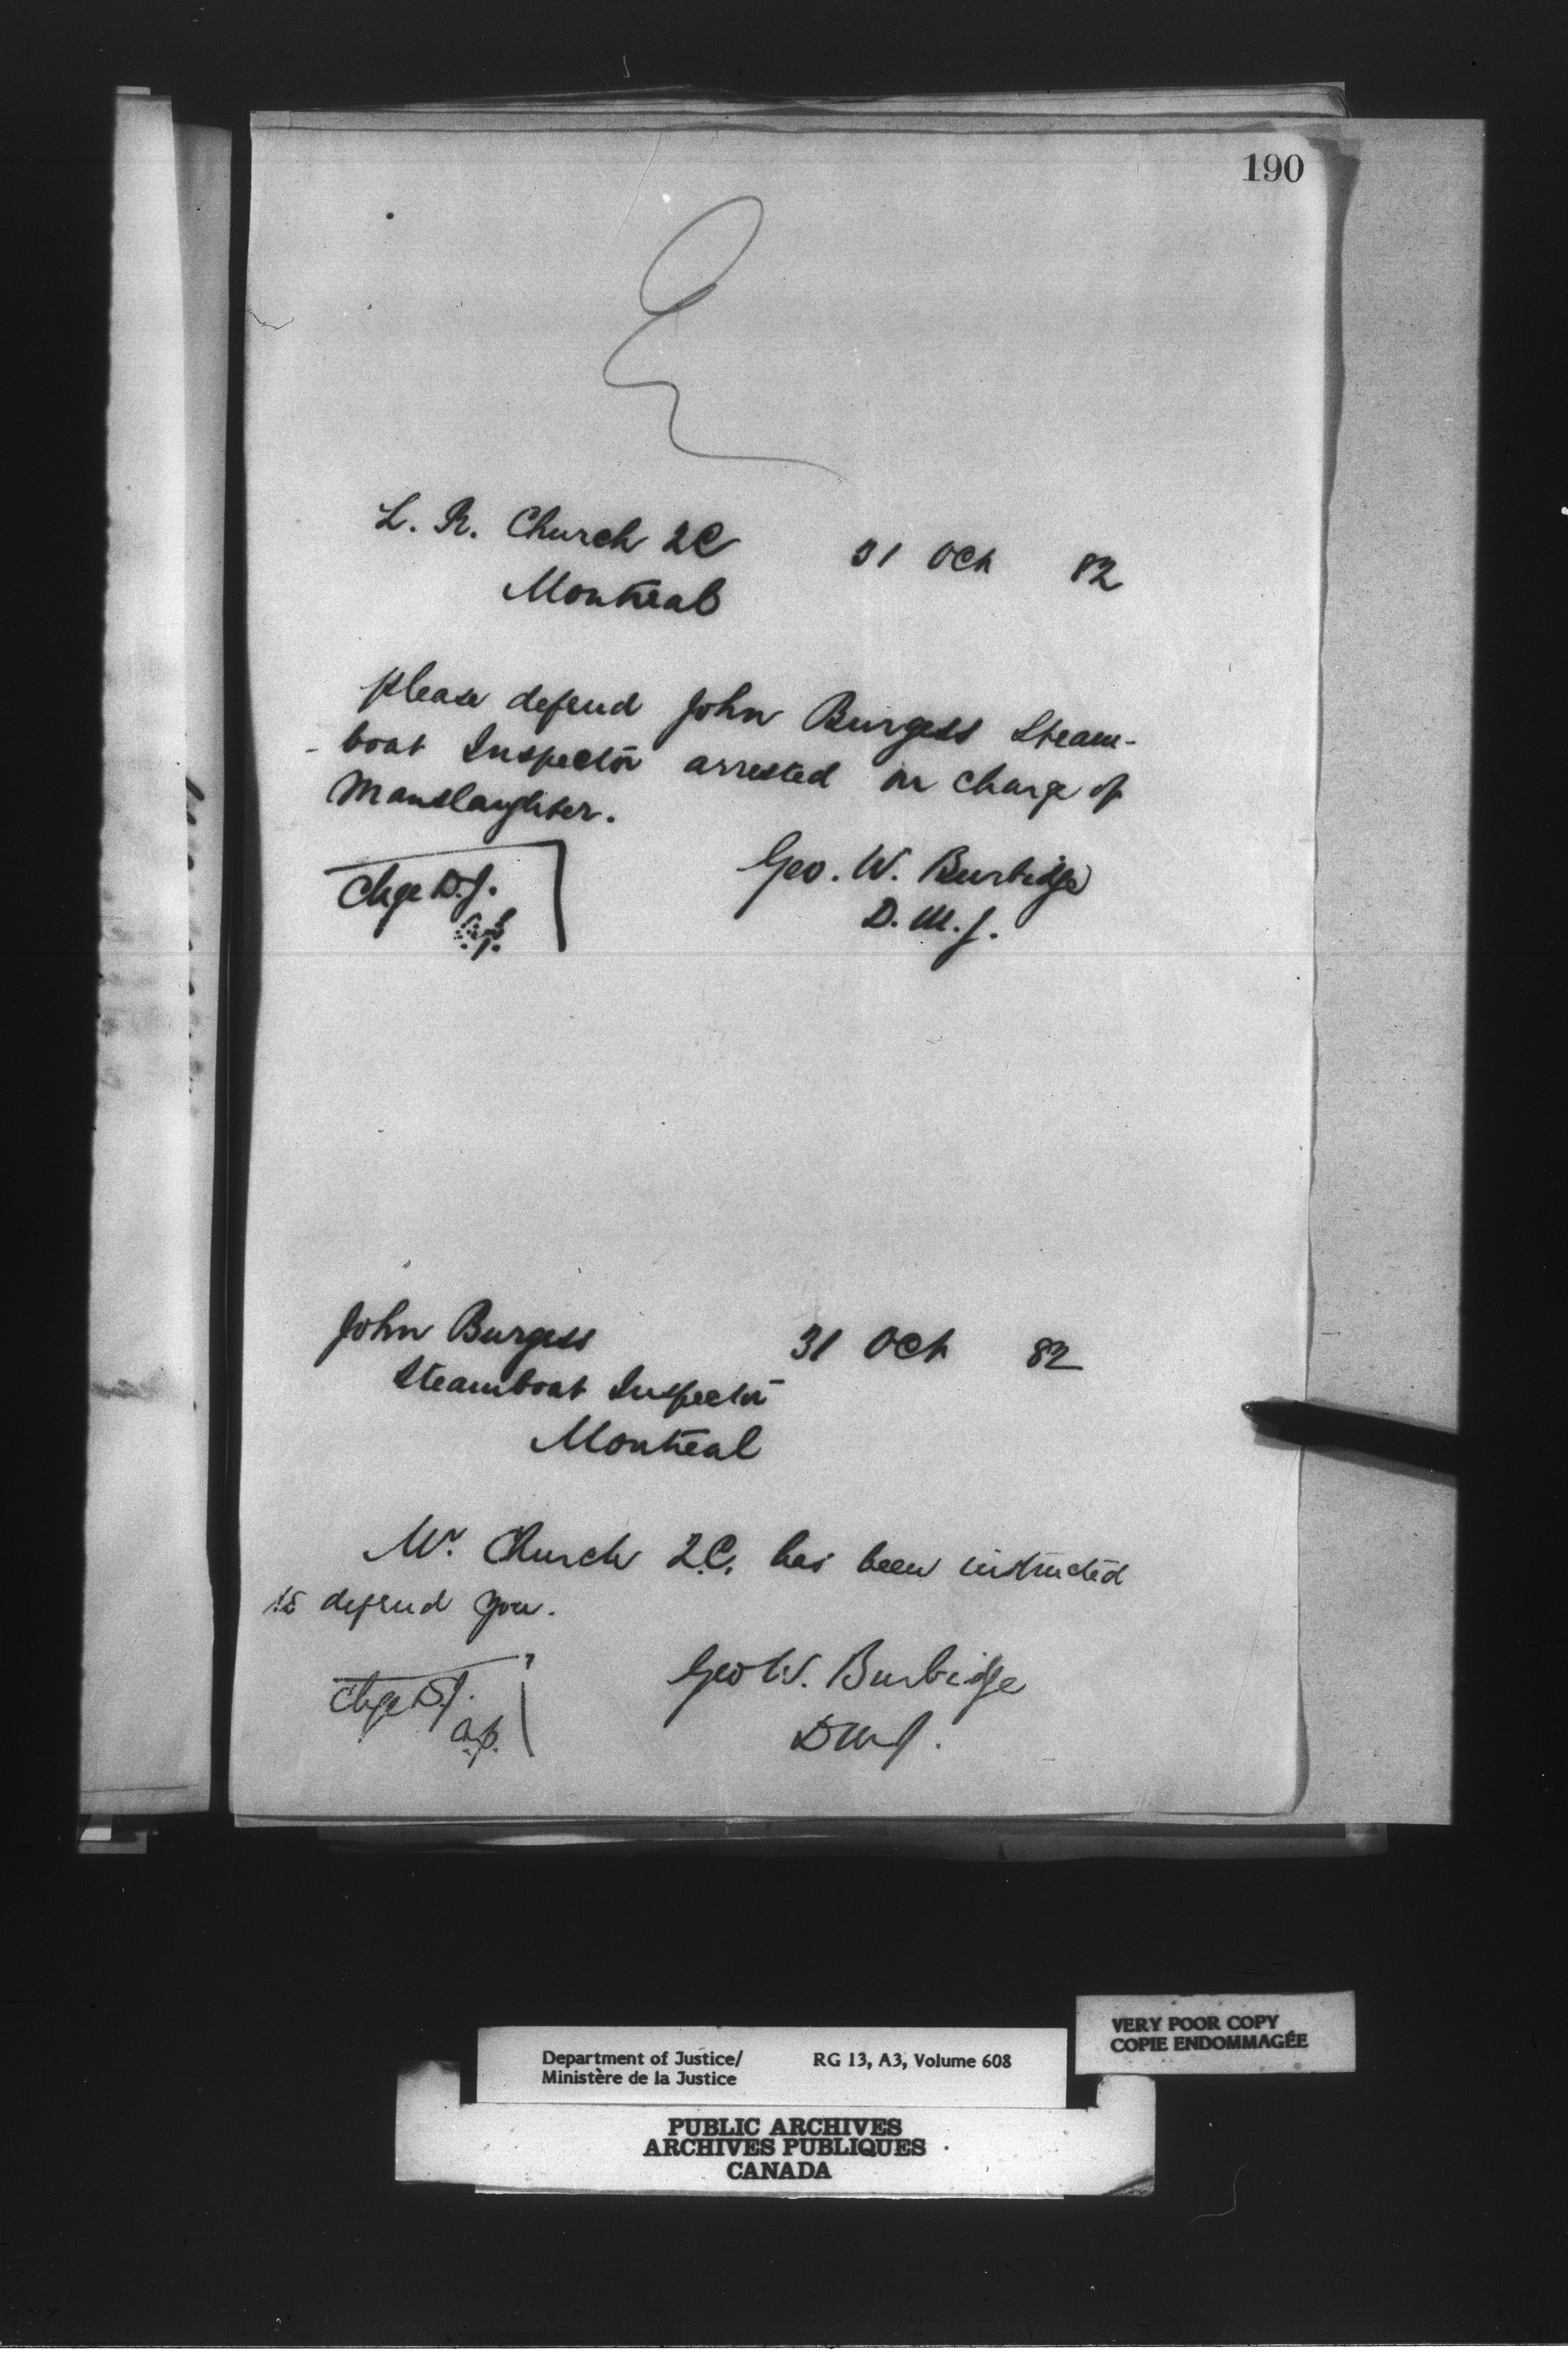 190
L. R. Church QC 31 Oct 82
Montreal
Please defend John Burgess Steam-
-boat Inspector arrested on charge of
Manslaughter.
Chge D.J. Geo. W. Burbidge
D. M. J.
John Burgess 31 Oct 82
Steamboat Inspector
Montreal
Mr. Church Q.C. has been instructed
to defend you.
Chge D.J. Geo W. Burbidge
a.p. DMJ.
Department of Justice/ RG 13, A3, Volume 608
Ministère de la Justice
VERY POOR COPY
COPIE ENDOMMAGÉE
PUBLIC ARCHIVES
ARCHIVES PUBLIQUES
CANADA